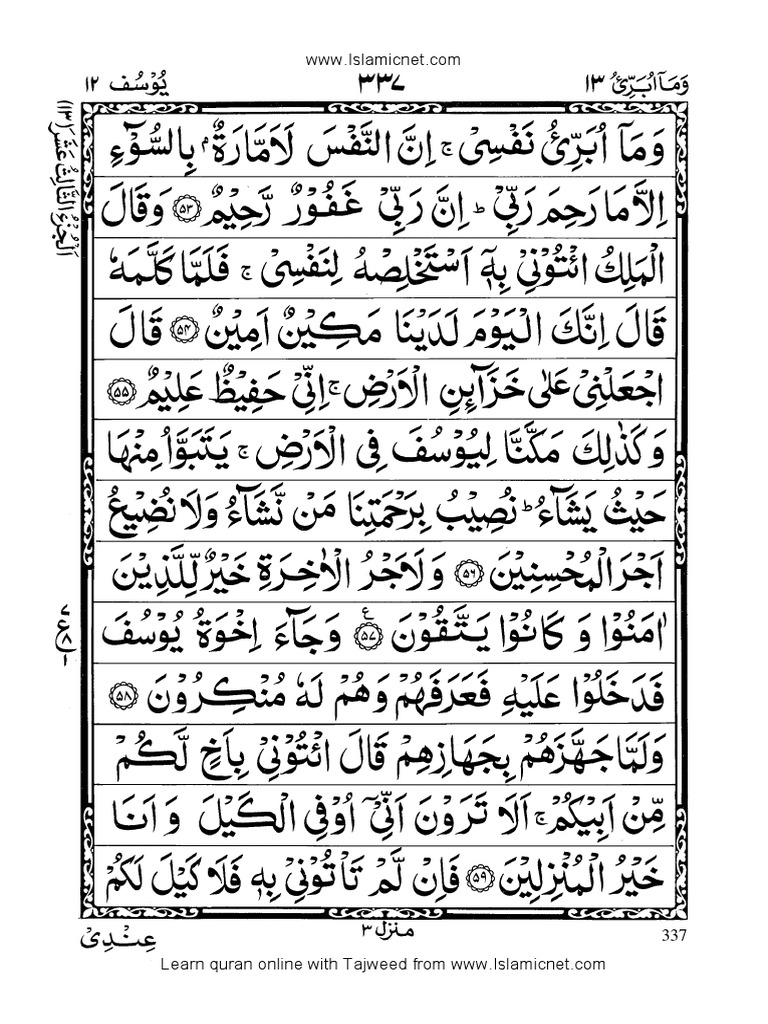 www.Islamicnet.com
وَمَآ اُبَرِّئُ ١٣ ٣٣٧ يُوْسُف ١٢
اَلْجُزْءُ الثَّالِثُ عَشَرَ (١٣)
وَمَآ اُبَرِّئُ نَفْسِيْ ۚ اِنَّ النَّفْسَ لَاَمَّارَةٌۢ بِالسُّوْٓءِ
اِلَّا مَا رَحِمَ رَبِّيْ ؕ اِنَّ رَبِّيْ غَفُوْرٌ رَّحِيْمٌ ﴿۵۳﴾ وَقَالَ
الْمَلِكُ ائْتُوْنِيْ بِهٖٓ اَسْتَخْلِصْهُ لِنَفْسِيْ ۚ فَلَمَّا كَلَّمَهٗ
قَالَ اِنَّكَ الْيَوْمَ لَدَيْنَا مَكِيْنٌ اَمِيْنٌ ﴿۵۴﴾ قَالَ
اجْعَلْنِيْ عَلٰى خَزَآئِنِ الْاَرْضِ ۚ اِنِّيْ حَفِيْظٌ عَلِيْمٌ ﴿۵۵﴾
وَكَذٰلِكَ مَكَّنَّا لِيُوْسُفَ فِي الْاَرْضِ ۚ يَتَبَوَّاُ مِنْهَا
حَيْثُ يَشَآءُ ؕ نُصِيْبُ بِرَحْمَتِنَا مَنْ نَّشَآءُ وَلَا نُضِيْعُ
اَجْرَ الْمُحْسِنِيْنَ ﴿۵۶﴾ وَلَاَجْرُ الْاٰخِرَةِ خَيْرٌ لِّلَّذِيْنَ
اٰمَنُوْا وَكَانُوْا يَتَّقُوْنَ ﴿۵۷﴾ ع وَجَآءَ اِخْوَةُ يُوْسُفَ
فَدَخَلُوْا عَلَيْهِ فَعَرَفَهُمْ وَهُمْ لَهٗ مُنْكِرُوْنَ ﴿۵۸﴾
وَلَمَّا جَهَّزَهُمْ بِجَهَازِهِمْ قَالَ ائْتُوْنِيْ بِاَخٍ لَّكُمْ
مِّنْ اَبِيْكُمْ ۚ اَلَا تَرَوْنَ اَنِّيْٓ اُوْفِي الْكَيْلَ وَاَنَا
خَيْرُ الْمُنْزِلِيْنَ ﴿۵۹﴾ فَاِنْ لَّمْ تَاْتُوْنِيْ بِهٖ فَلَا كَيْلَ لَكُمْ
عِنْدِيْ منزل ٣ 337
Learn quran online with Tajweed from www.Islamicnet.com